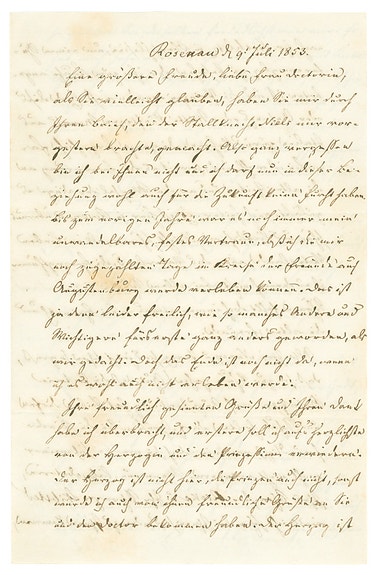 Rosenau d. 9t Juli 1853.
Eine größere Freude, liebe Frau Doctorin,
als Sie vielleicht glauben, haben Sie mir durch
Ihren Brief, den der Stallknecht Niels mir vor-
gestern brachte, gemacht. Also ganz vergessen
bin ich bei Ihnen nicht und ich darf nun in dieser Be-
ziehung wohl auch für die Zukunft keine Furcht haben.
Bis zum vorigen Jahre war es noch immer mein
unwandelbares, festes Vertrauen, daß ich die mir
noch zugezählten Tage im Kreise der Freunde auf
Augustenburg würde verleben können. Das ist
ja denn leider freilich, wie so manches Andere und
Wichtigere fürs erste ganz anders geworden, als
wir gedacht. Doch das Ende ist noch nicht da, wenn
ich es wohl auch nicht erleben werde.
Ihre freundlich gesinnten Grüße und Ihren Dank
habe ich überbracht, und erstere soll ich aufs herzlichste
von der Herzogin und den Prinzessinnen erwiedern.
Der Herzog ist nicht hier, die Prinzen auch nicht, sonst
würde ich auch von ihnen freundliche Grüße an Sie
und den Doctor bekommen haben. Der Herzog ist